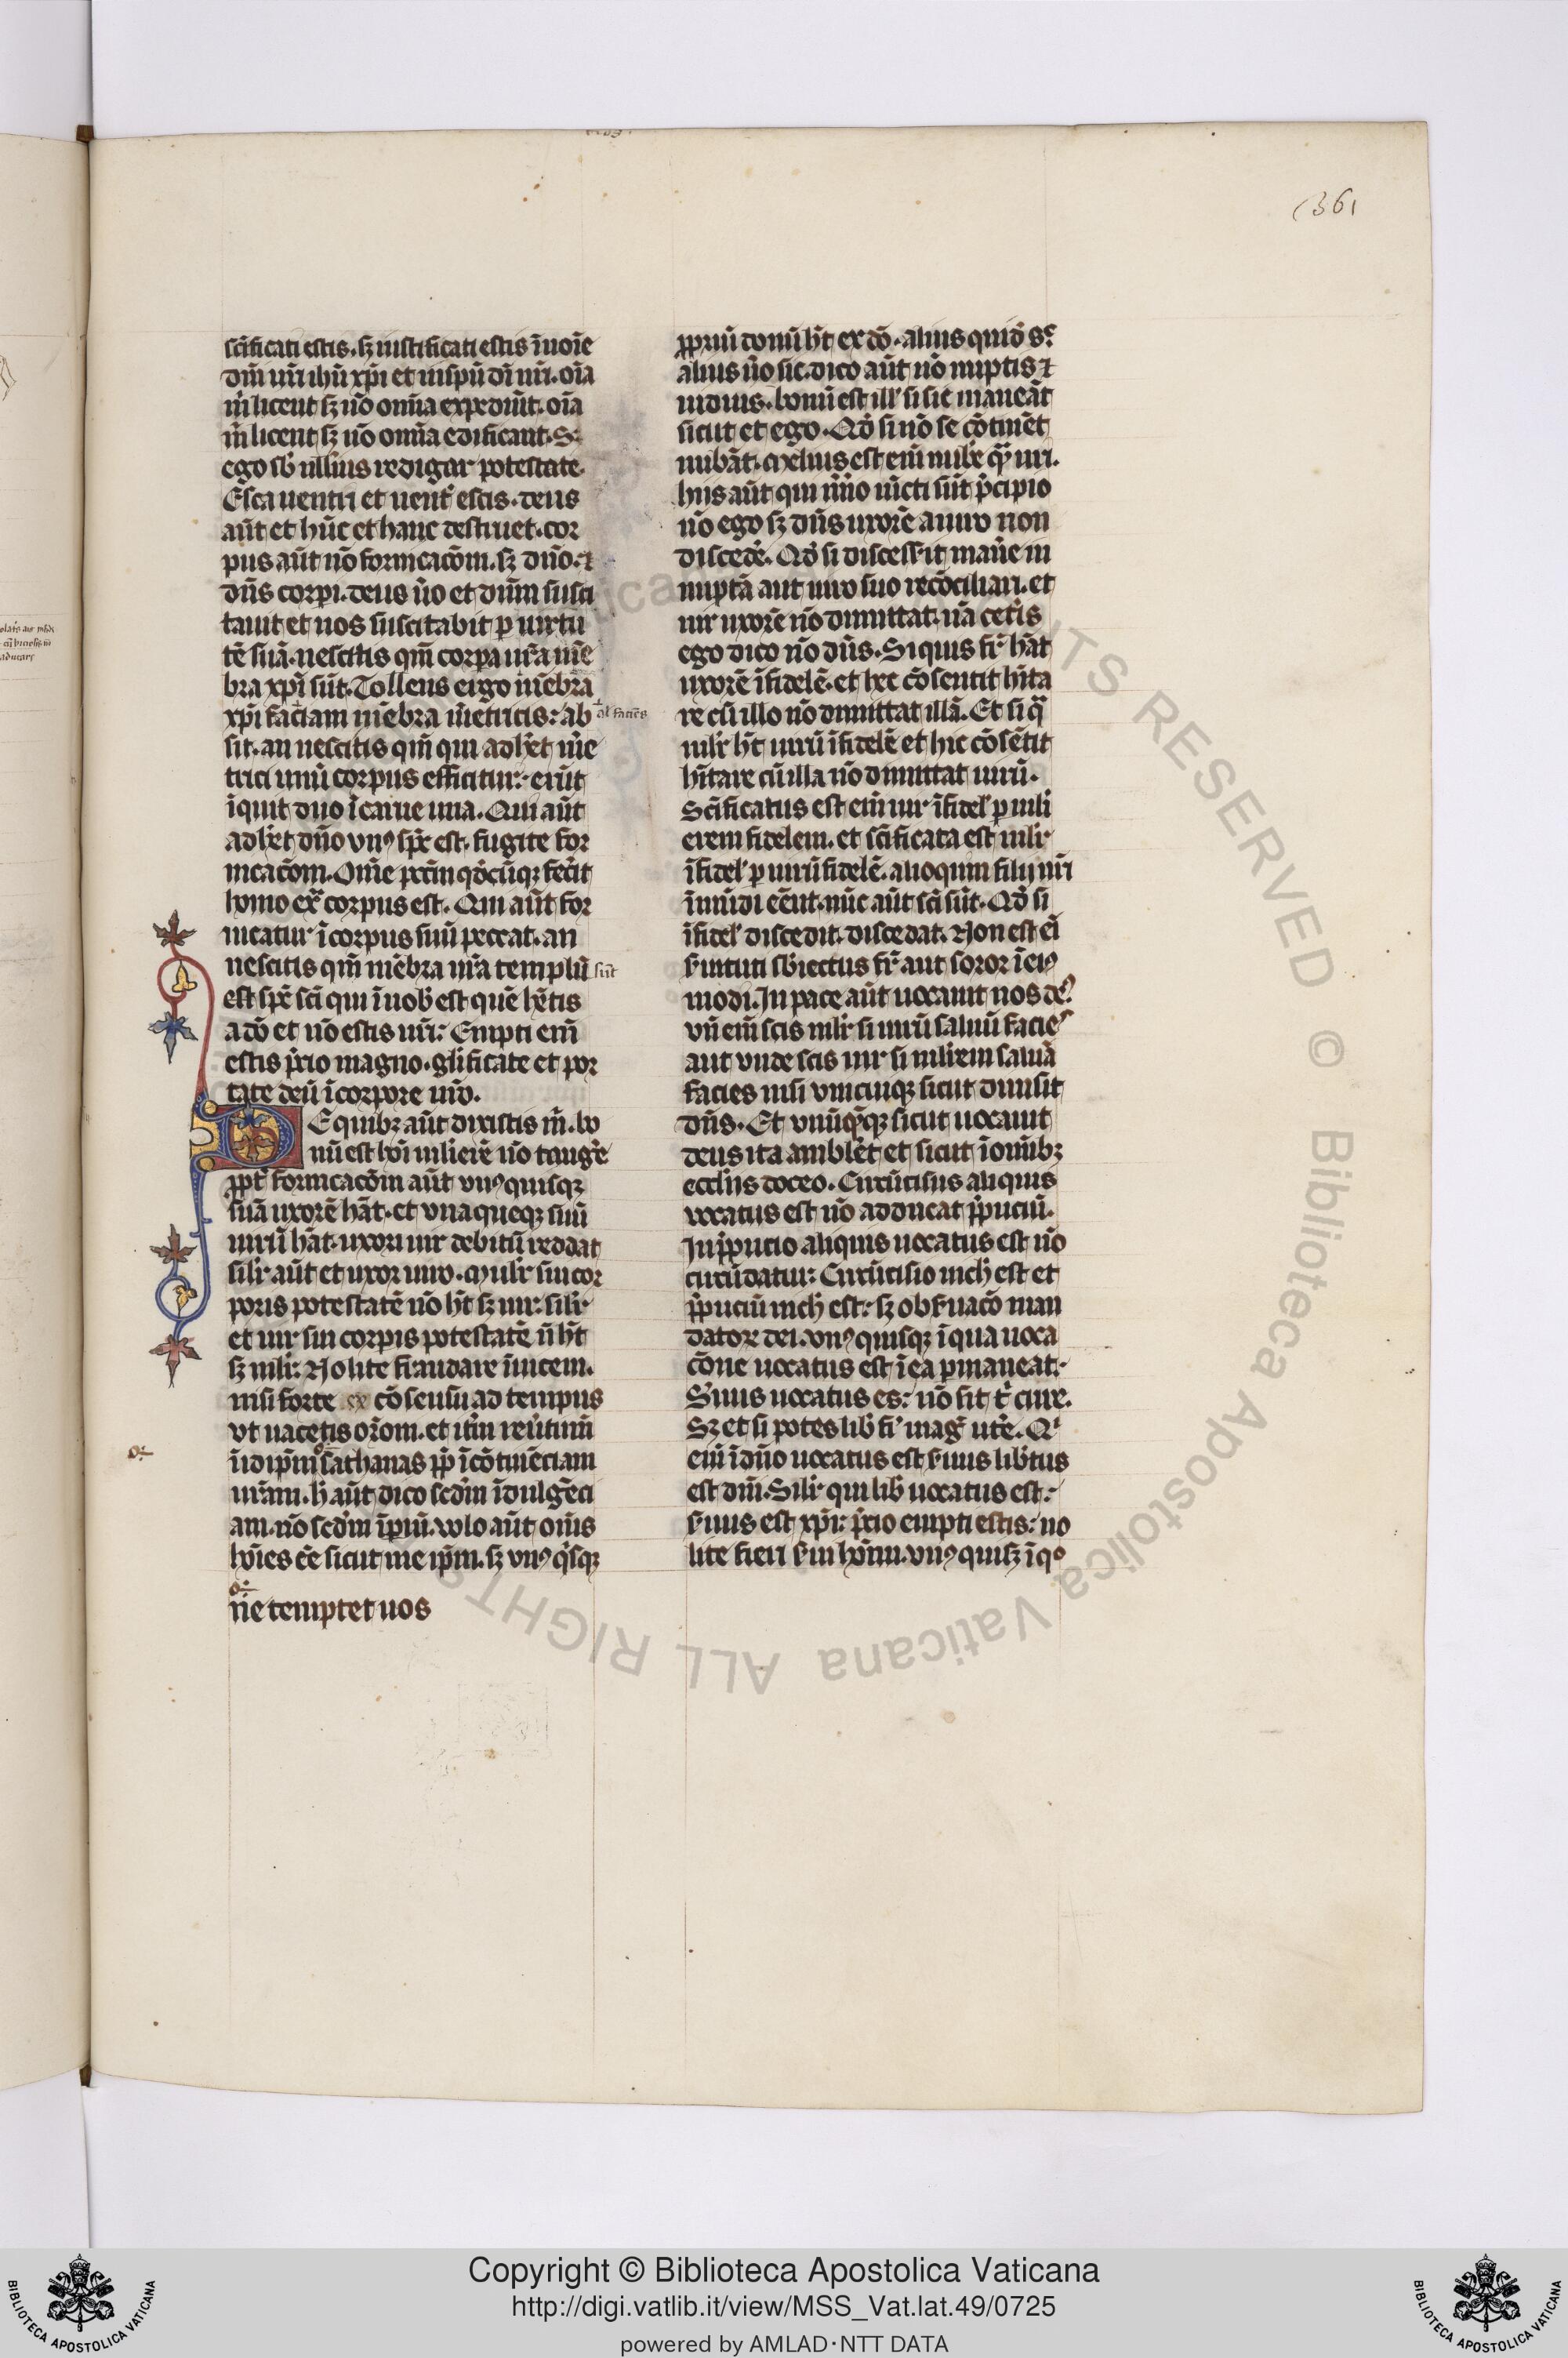 361
sc̄ificati estis. sꝫ iustificati estis ī noīe
dn̄i nr̄i ihū xp̄i et in spū dī nr̄i. oīa
m̄ licent sꝫ nō om̄ia expediūt. oīa
m̄ licent sꝫ nō om̄ia edificant. S;
ego sb̄ ullius redigar potestate.
Esca uentri et uent̄ escis. deus
aūt et hūc et hanc destruet. cor
pus aūt nō fornicacōni. sꝫ dn̄o. ⁊
dn̄s corpi. deus ūo et dnm̄ susci
tauit et nos suscitabit p uirtu
tē suā. nescitis qm̄ corpa ur̄a mē
bra xp̄i sūt. Tollens ergo mēbra
xp̄i faciam mēbra mēt̄ricis: ab
al̄ faciēs
sit. an nescitis qm̄ qui adhēt me
trici unū corpus efficitur: erūt
īquit duo ī carne una. Qui aūt
adhēt dn̄o vnꝰ spc̄ est. fugite for
nicacōm. Om̄e pctm̄ qd̄cūqꝫ fec̄it
homo ext̄ corpus est. Qui aūt for
nicatur ī corpus suū peccat. an
nescitis qm̄ mēbra ur̄a templū
sūt
est spc̄ sc̄i qui ī uob̄ est quē hētis
a dō et nō estis ur̄i: Empti em̄
estis p̄cio magno. glificate et por
tate deū ī corpore ur̄o.
DE quibꝫ aūt dixistis m̄. bo
nū est hoī mlierē nō tangē
ppt̄ fornicacōm aūt vnꝰquisqꝫ
suā uxorē hāt. et vnaqueqꝫ suū
uirū hāt. uxori uir debitū reddat
silr̄ aūt et uxor uiro. Mulr̄ sui cor
poris potestatē nō hт̄ sꝫ uir: silr̄
et uir sui corpis potestatē n̄ hт̄
sꝫ mlr̄: Nolite fraudare īuicem.
nisi forte ex cōsensu ad tempus
vt uacetis orōni. et itm̄ reūtimī
ī id ipm̄ sathanas pp̄ īcōtinēciam
ur̄am. h̄ aūt dico scdm̄ īdulgēci
am. nō scdm̄ īpiū. volo aūt om̄s
hoīes ēe sicut me ip̄m. sꝫ vnꝰqⁱsqꝫ
ne temptet uos
ppriū donū hт̄ ex dō. alius quidē sᶜ
alius ūo sic. dico aūt nō nuptis ⁊
uiduis. bonū est ill̄ si sic maneāt
sicut et ego. Qd̄ si nō se cōtinēt
nubāt. Melius est em̄ nubē qᵃ uri.
hiis aūt qui mr̄io iūcti sūt p̄cipio
nō ego sꝫ dn̄s uxorē a uiro non
discedē. Qd̄ si discess̄it manē in
nuptā aut uiro suo recōciliari. et
uir uxorē nō dimittat. nā cet̄is
ego dico nō dn̄s. Si quis fr̄ hāt
uxorē īfidelē. et hec cōsentit hīta
re cū illo nō dimittat illā. Et si qᵃ
mlr̄ hт̄ uirū īfidelē et hic cōsētit
hītare cū illa nō dimittat uirū.
Sc̄ificatus est em̄ uir īfidel̄ p muli
erem fidelem. et sc̄ificata est mlr̄
īfidel̄ p uirū fidelē. alioquin filij ur̄i
īmūdi eēnt. nūc aūt sc̄i sūt. Qd̄ si
īfidel̄ discedit. discedat. Non est eī
s̄uituti sb̄iectus fr̄ aut soror ī eiꝰ
modi. In pace aūt uocauit nos deꝰ
vn̄ em̄ scis mlr̄ si uirū saluū facieˢ
aut vnde scis uir si mlierem saluā
facies nisi vnicuiqꝫ sicut diuisit
dn̄s. Et vnūqᵉqꝫ sicut uocauit
deus ita ambulēt et sicut ī om̄ibꝫ
ecclijs doceo. Circūcisus aliquis
vocatus est nō adducat p̄puciū.
In p̄pucio aliquis uocatus est nō
circūdatur: Circūcisio nich̄ est et
p̄puciū nich̄ est: sꝫ obs̄uacō man
datoꝝ dei. vnꝰquisqꝫ ī qua uoca
cōne uocatus est ī ea pmaneat:
S̄uus uocatus es: nō sit t̄ cure.
Sꝫ et si potes lib̄ fi' maḡ utē. Qⁱ
em̄ ī dn̄o uocatus est s̄uus lib̄tus
est dn̄i. Silr̄ qui lib̄ uocatus est:
s̄uus est xp̄i: p̄cio empti estis: no
lite fieri s̄ui hoīum. vnꝰquisꝫ ī qᵒ
Copyright © Biblioteca Apostolica Vaticana
http://digi.vatlib.it/view/MSS_Vat.lat.49/0725
powered by AMLAD·NTT DATA
BIBLIOTECA APOSTOLICA VATICANA
BIBLIOTECA APOSTOLICA VATICANA
ALL RIGHTS RESERVED © Biblioteca Apostolica Vaticana